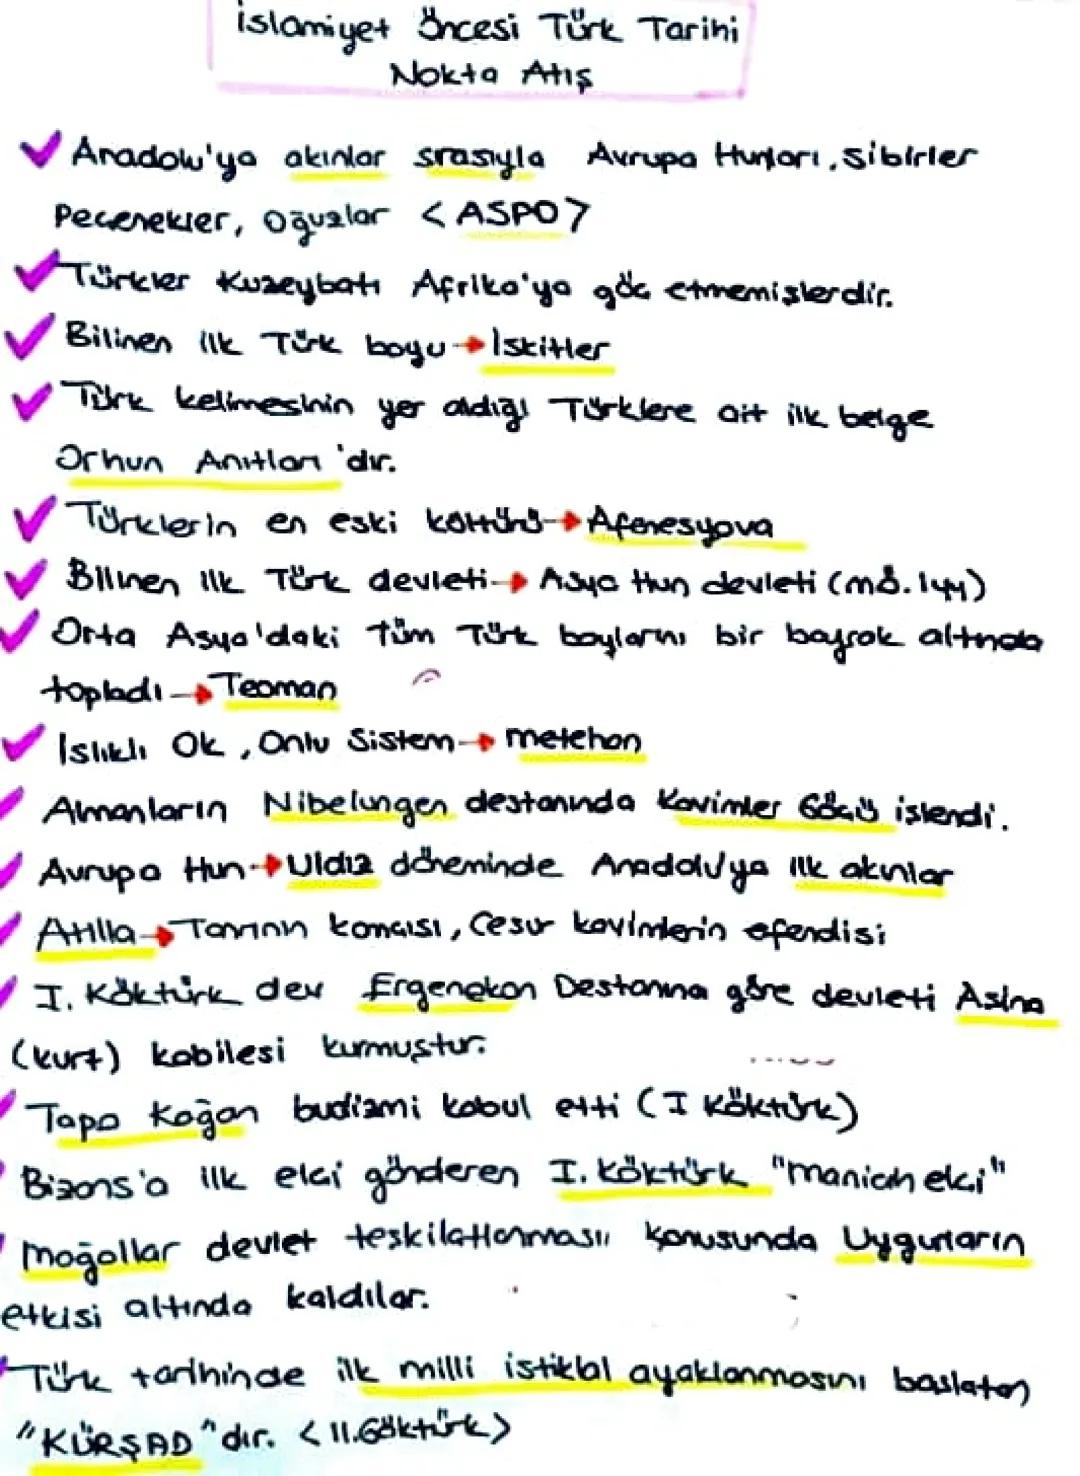 İslamiyet Öncesi Türk Tarihi
Nokta Atış
Anadolu'ya akınlar sırasıyla Avrupa Hunları, Sibirler
Peçenekler, Oğuzlar <ASPO>
Türkler Kuzeybatı Afrika'ya göç etmemişlerdir.
Bilinen ilk Türk boyu→İskitler
Türk kelimesinin yer aldığı Türklere ait ilk belge
Orhun Anıtları'dır.
Türklerin en eski kültürü→Afenesyova
Bilinen ilk Türk devleti→Asya Hun devleti (mö. 144)
Orta Asya'daki tüm Türk boylarını bir bayrak altında
topladı→Teoman
Islıklı Ok, Onlu Sistem→metehan
Almanların Nibelungen destanında Kavimler Göçü işlendi.
Avrupa Hun→Uldız döneminde Anadolu'ya ilk akınlar
Atilla→Tanrının kamçısı, Cesur kavimlerin efendisi
I. Köktürk dev Ergenekon Destanına göre devleti Asina
(kurt) kabilesi kurmuştur.
Tapo Kağan budizmi kabul etti (I Köktürk)
Bizans'a ilk elçi gönderen I. Köktürk "maniah elçi"
Moğollar devlet teşkilatlanması konusunda Uygurların
etkisi altında kaldılar.
Türk tarihinde ilk milli istiklal ayaklanmasını başlatan
"KÜRŞAD"dır. <II.Göktürk>